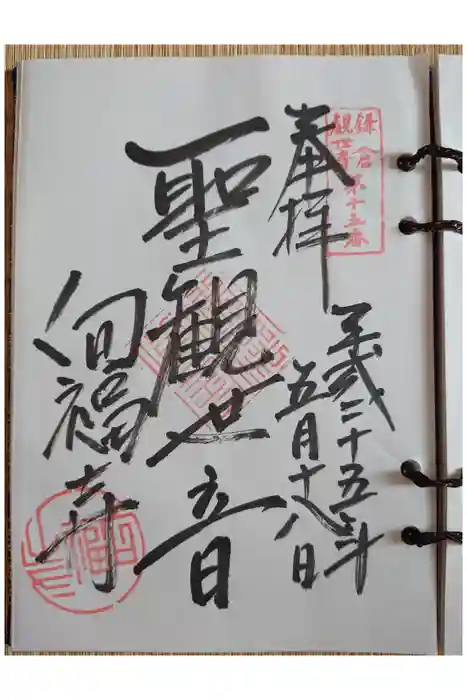 鎌倉
観世音第十五番
奉拝
平成二十五年
五月十八日
聖観世音
向福寺